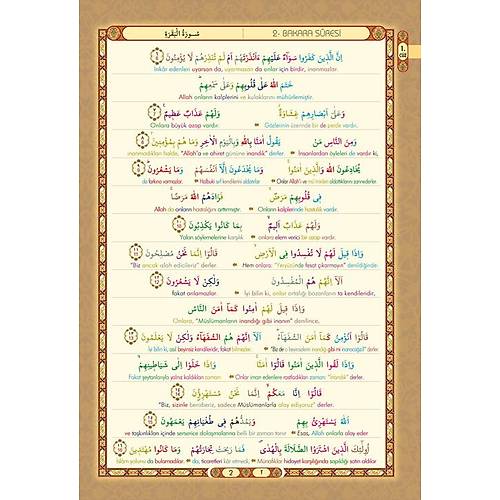 سُورَةُ الْبَقَرَةِ 2- BAKARA SÛRESİ
1. cüz
اِنَّ الَّذ۪ينَ كَفَرُوا سَوَٓاءٌ عَلَيْهِمْ ءَاَنْذَرْتَهُمْ اَمْ لَمْ تُنْذِرْهُمْ لَا يُؤْمِنُونَ
İnkâr edenleri uyarsan da, uyarmasan da onlar için birdir, inanmazlar.
خَتَمَ اللّٰهُ عَلٰى قُلُوبِهِمْ وَعَلٰى سَمْعِهِمْ
Allah onların kalplerini ve kulaklarını mühürlemiştir.
وَعَلٰٓى اَبْصَارِهِمْ غِشَاوَةٌ وَلَهُمْ عَذَابٌ عَظ۪يمٌ
Gözlerinin üzerinde bir de perde vardır. Onlara büyük azap vardır.
وَمِنَ النَّاسِ مَنْ يَقُولُ اٰمَنَّا بِاللّٰهِ وَبِالْيَوْمِ الْاٰخِرِ وَمَا هُمْ بِمُؤْمِن۪ينَ
İnsanlardan öyleleri de vardır ki, inanmadıkları halde, "Allah'a ve ahiret gününe inandık" derler.
يُخَادِعُونَ اللّٰهَ وَالَّذ۪ينَ اٰمَنُوا وَمَا يَخْدَعُونَ اِلَّٓا اَنْفُسَهُمْ وَمَا يَشْعُرُونَ
Onlar Allah'ı ve mü'minleri aldattıklarını zannederler. Halbuki sırf kendilerini aldatırlar da farkına varmazlar.
ف۪ي قُلُوبِهِمْ مَرَضٌ فَزَادَهُمُ اللّٰهُ مَرَضًا
Onların kalplerinde hastalık vardır. Allah da onların hastalığını arttırmıştır.
وَلَهُمْ عَذَابٌ اَل۪يمٌ بِمَا كَانُوا يَكْذِبُونَ
onlara elem verici bir azap vardır. Yalan söylemelerine karşılık
وَاِذَا ق۪يلَ لَهُمْ لَا تُفْسِدُوا فِي الْاَرْضِ قَالُٓوا اِنَّمَا نَحْنُ مُصْلِحُونَ
Hem onlara: "Yeryüzünde fesat çıkarmayın" denildiğinde: "Biz ancak ıslah edicileriz" derler.
اَلَٓا اِنَّهُمْ هُمُ الْمُفْسِدُونَ وَلٰكِنْ لَا يَشْعُرُونَ
İyi bilin ki, onlar ortalığı bozanların ta kendileridir, fakat anlamazlar.
وَاِذَا ق۪يلَ لَهُمْ اٰمِنُوا كَمَٓا اٰمَنَ النَّاسُ
Onlara, "Müslümanların inandığı gibi inanın" denilince,
قَالُٓوا اَنُؤْمِنُ كَمَٓا اٰمَنَ السُّفَهَٓاءُ اَلَٓا اِنَّهُمْ هُمُ السُّفَهَٓاءُ وَلٰكِنْ لَا يَعْلَمُونَ
İyi bilin ki, asıl beyinsiz kendileridir, fakat bilmezler.
وَاِذَا لَقُوا الَّذ۪ينَ اٰمَنُوا قَالُٓوا اٰمَنَّا وَاِذَا خَلَوْا اِلٰى شَيَاط۪ينِهِمْ
Onlar iman edenlere rastladıkları zaman: "inandık" derler. Fakat şeytanlarıyla yalnız kaldıkları zaman:
قَالُٓوا اِنَّا مَعَكُمْ اِنَّمَا نَحْنُ مُسْتَهْزِؤُ۫نَ
"Biz, sizinle beraberiz, sadece Müslümanlarla alay ediyoruz" derler.
اَللّٰهُ يَسْتَهْزِئُ بِهِمْ وَيَمُدُّهُمْ ف۪ي طُغْيَانِهِمْ يَعْمَهُونَ
Esas, Allah onlarla alay eder ve taşkınlıkları içinde serserice dolaşmalarına belli bir zaman tanır.
اُو۬لٰٓئِكَ الَّذ۪ينَ اشْتَرَوُا الضَّلَالَةَ بِالْهُدٰى فَمَا رَبِحَتْ تِجَارَتُهُمْ وَمَا كَانُوا مُهْتَد۪ينَ
Münafıklar hidayet karşılığında sapıklığı satın aldılar da, ticaretleri kâr etmedi, İslam yolunu da bulamadılar.
2 ٢